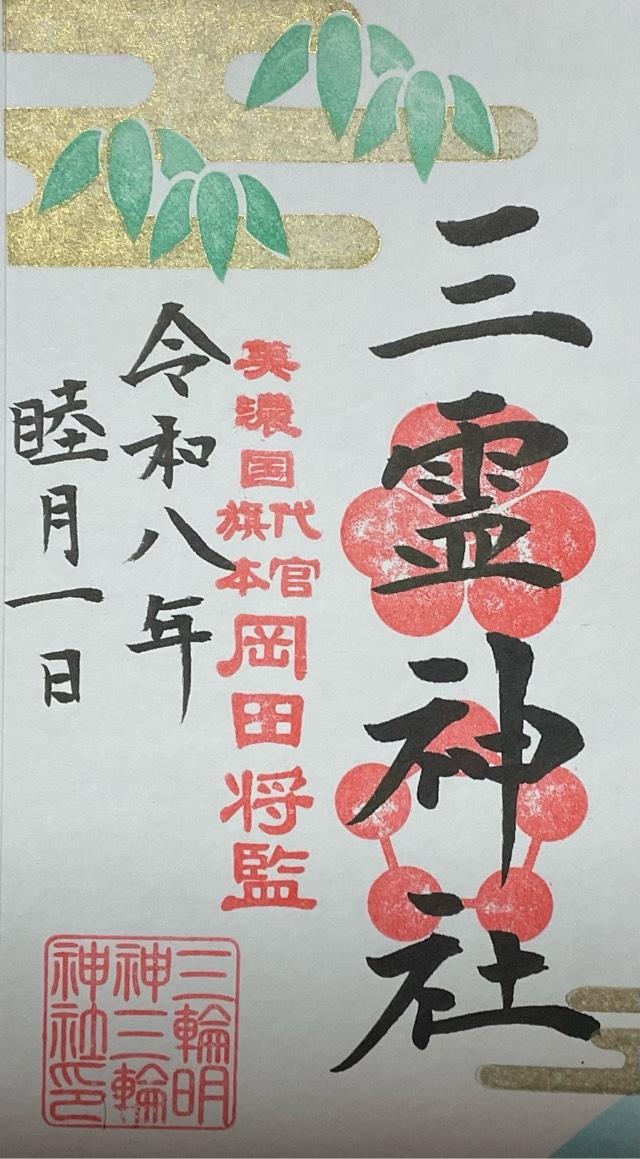 三霊神社
美濃国
代官
旗本
岡田将監
令和八年
睦月一日
三輪明
神三輪
神社印